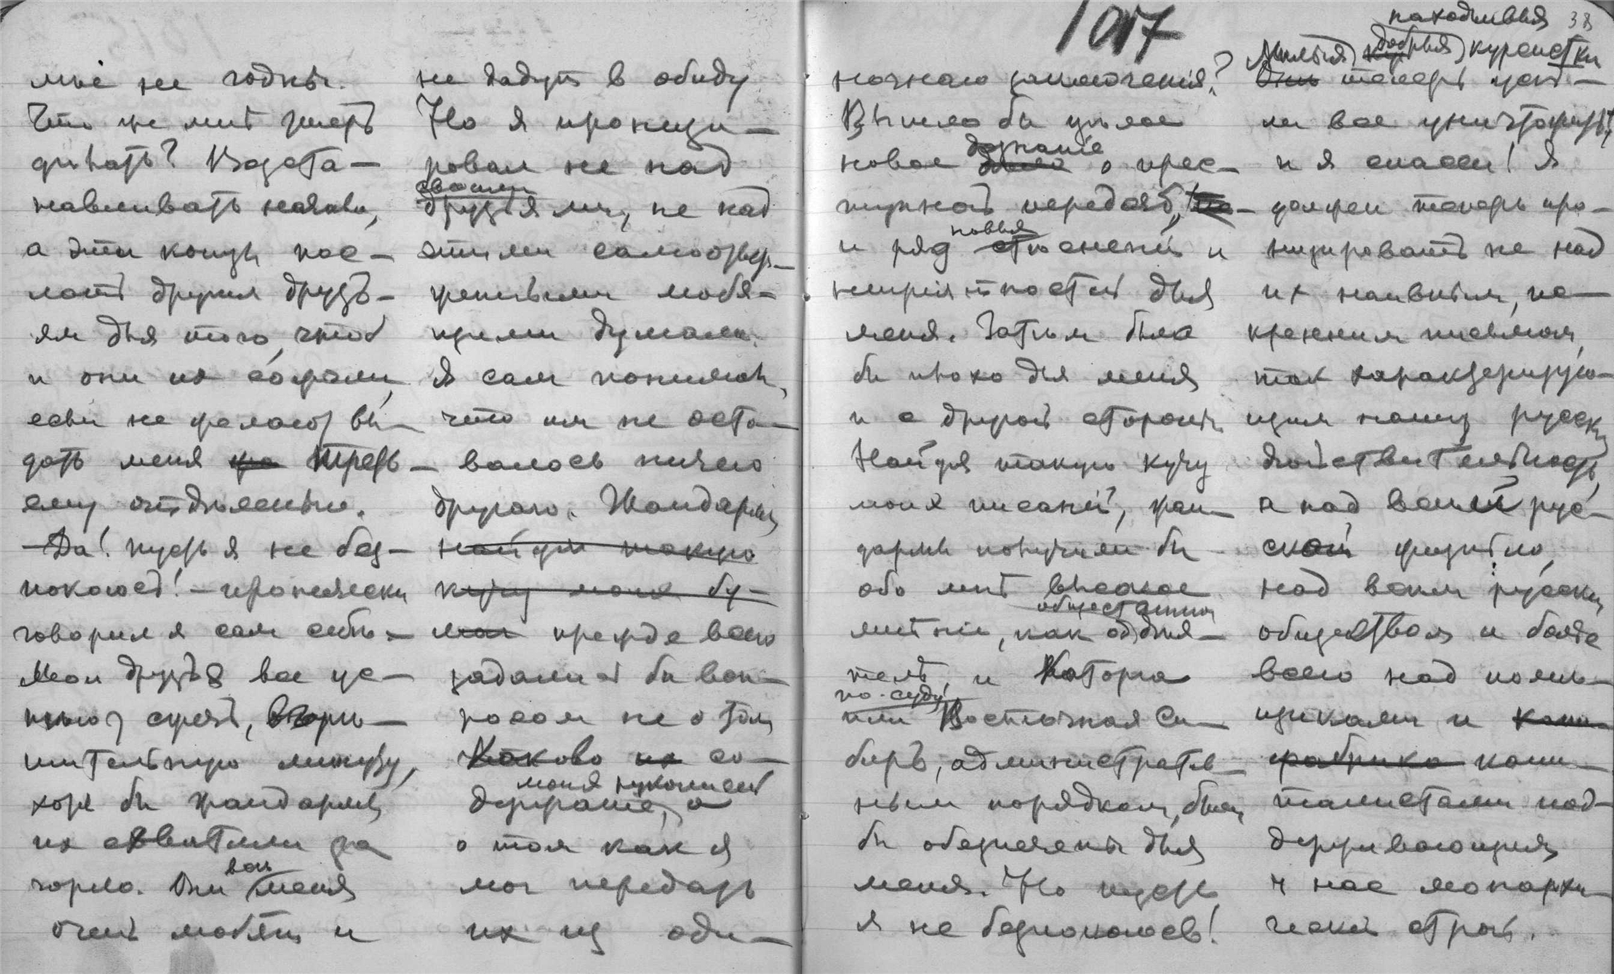 мнѣ не годны.
Что же мнѣ теперь
дѣлать? Возста-
навливать начало,
а эти концы пос-
лать другим друзь-
ям для того, чтоб
и они их сожгли,
если не желают вы-
дать меня треть-
ему отдѣленью.
— Да! пусть я не без-
покоюсь! — иронически
говорил я сам себѣ. —
Мои друзья все ис-
хотя бы жандармы
их схватили за
горло. Они всѣ меня
очень любят и
не дадут в обиду
Но я иронизи-
ровал не над
своими
друзьями, не над
этими самоотвер-
женными любя-
щими душами.
Я сам понимал,
что им не оста-
валось ничего
другого. Жандармы,
найдя такую
кучу моих бу-
маг прежде всего
задались бы воп-
росом не о том
каково их со-
моих рукописей
держание, а
о том как я
мог передать
их из оди-
1017
ночнаго заключенія?
Вышло бы цѣлое
дознаніе
новое дѣло о прес-
новыя
и ряд стѣснений и
непріятностей для
меня. Затѣм было
бы плохо для меня
и с другой стороны
Найдя такую кучу
моих писаний, жан-
дармы получили бы
обо мнѣ высокое
общественном
мнѣніе, как о дѣя-
телѣ, и Каторга
по суду,
или Восточная Си-
бирь, административ-
ным порядком, были
бы обезпечены для
меня. Но пусть
я не безпокоюсь!
38
находчивыя
Милыя, добрыя курсистки
теперь успѣ-
ли все уничтожить,
и я спасен! Я
должен теперь иро-
низировать не над
их наивным, ис-
кренним письмом,
так характеризую-
щим нашу русскую
дѣйствительность,
а над всей рус-
ской жизнью,
над всем русским
обществом и болѣе
всего над помѣ-
щиками и капи-
фабрико капи-
талистами под-
держивающими
у нас монархи-
ческий строй.